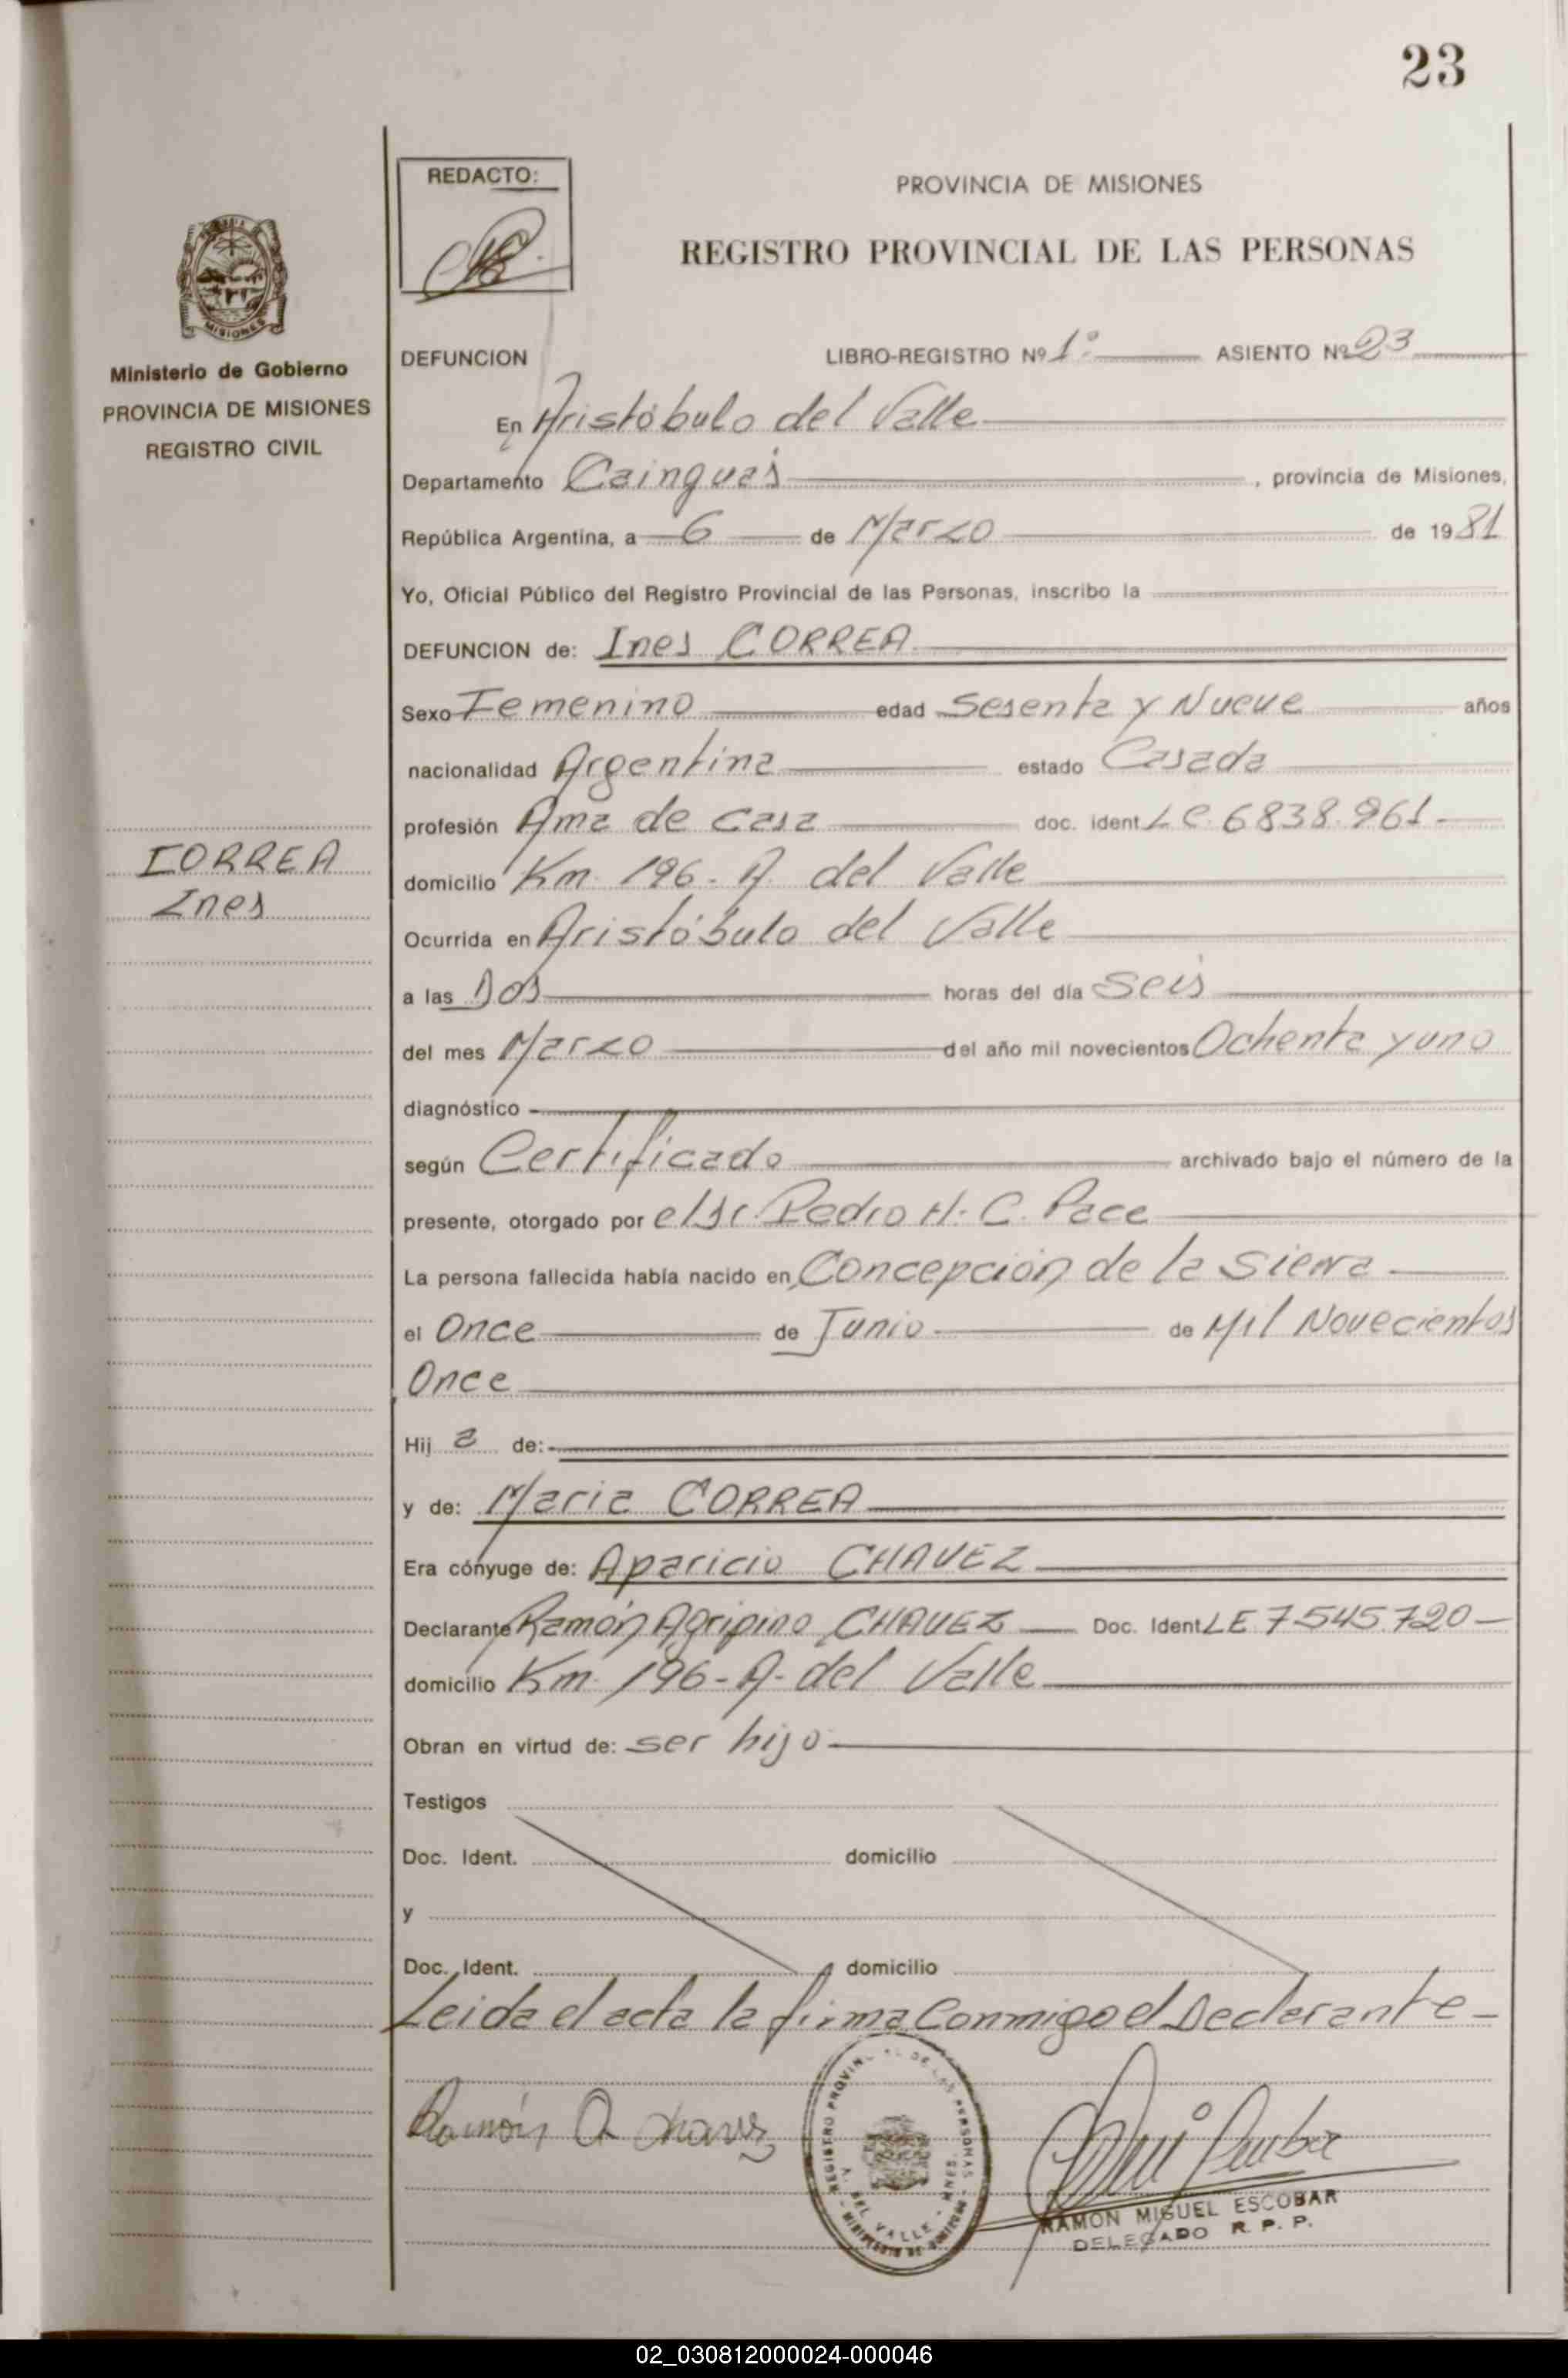 23
REDACTO:
PROVINCIA DE MISIONES
REGISTRO PROVINCIAL DE LAS PERSONAS
MISIONES
Ministerio de Gobierno
PROVINCIA DE MISIONES
REGISTRO CIVIL
DEFUNCION LIBRO-REGISTRO Nº 1º ASIENTO Nº 23
En Aristóbulo del Valle
Departamento Cainguás, provincia de Misiones,
República Argentina, a 6 de Marzo de 1981
Yo, Oficial Público del Registro Provincial de las Personas, inscribo la
DEFUNCION de: Ines CORREA
Sexo Femenino edad Sesenta y Nueve años
nacionalidad Argentina estado Casada
profesión Ama de casa doc. ident L C. 6838.961
CORREA
Ines
domicilio Km. 196 - A. del Valle
Ocurrida en Aristóbulo del Valle
a las Dos horas del día Seis
del mes Marzo del año mil novecientos Ochenta y uno
diagnóstico
según Certificado archivado bajo el número de la
presente, otorgado por el Dr. Pedro H. C. Pace
La persona fallecida había nacido en Concepción de la Sierra
el Once de Junio de Mil Novecientos
Once
Hij a de:
y de: Maria CORREA
Era cónyuge de: Aparicio CHAVEZ
Declarante Ramón Agripino CHAVEZ Doc. Ident LE 7.545.720
domicilio Km. 196 - A. del Valle
Obran en virtud de: ser hijo
Testigos
Doc. Ident. domicilio
y
Doc. Ident. domicilio
Leida el acta la firma Conmigo el Declarante
Ramón A chavez
REGISTRO PROVINCIAL DE LAS PERSONAS
A. DEL VALLE - MNES.
RAMON MIGUEL ESCOBAR
DELEGADO R. P. P.
02_030812000024-000046